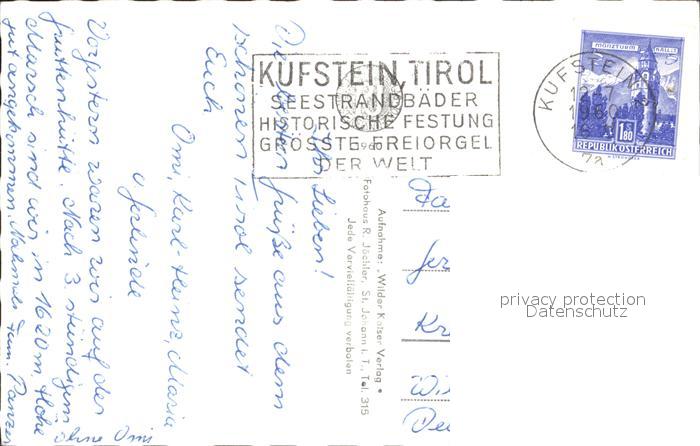 KUFSTEIN, TIROL
SEESTRANDBÄDER
HISTORISCHE FESTUNG
GRÖSSTE FREIORGEL
DER WELT
KUFSTEIN
1960
MÜNZTURM HALL
1.80
REPUBLIK ÖSTERREICH
Ihr Lieben!
Die besten Grüße aus dem
schönen Tirol sendet
Euch
Omi, Karl-Heinz, Maria
u. Gerlinde
Vorgestern waren wir auf der
Gruttenhütte. Nach 3 stündigem
Marsch sind wir in 1620 m Höhe
gut angekommen. Nochmals
ohne Omi
Aufnahme: "Wilder Kaiser Verlag"
Fotohaus R. Jöchler, St. Johann i. T., Tel. 315
Jede Vervielfältigung verboten
Fa
Kr
privacy protection
Datenschutz